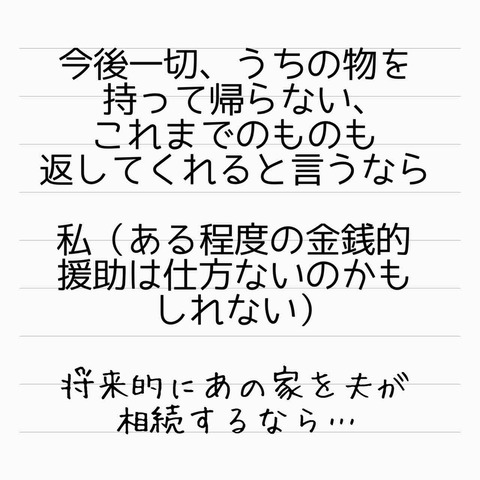 今後一切、うちの物を
持って帰らない、
これまでのものも
返してくれると言うなら
私（ある程度の金銭的
援助は仕方ないのかも
しれない）
将来的にあの家を夫が
相続するなら…